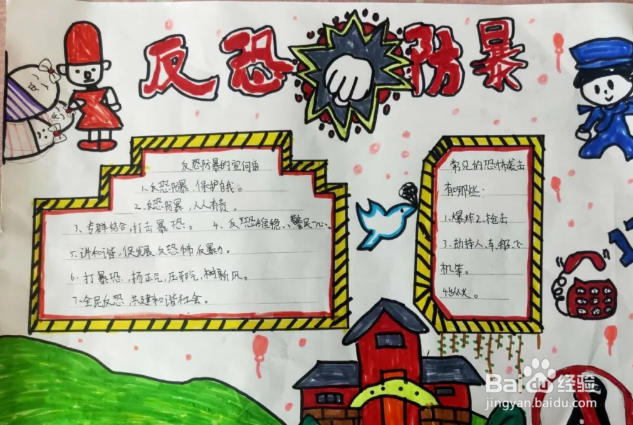 反恐防暴
反恐防暴的宣传语
1、反恐防暴,保护自我。
2、反恐防暴,人人有责。
3、专群结合,打击暴恐。 4、反恐维稳、警民一心。
5、讲和谐,促发展反恐怖反暴力。
6、打暴恐,扬正气,压邪气,树新风。
7、全民反恐,共建和谐社会。
常见的恐怖袭击
有哪些:
1.爆炸2.枪击
3.劫持人,车,船,飞
机等。
4.纵火。
11
Baidu 经验
jingyan.baidu.com